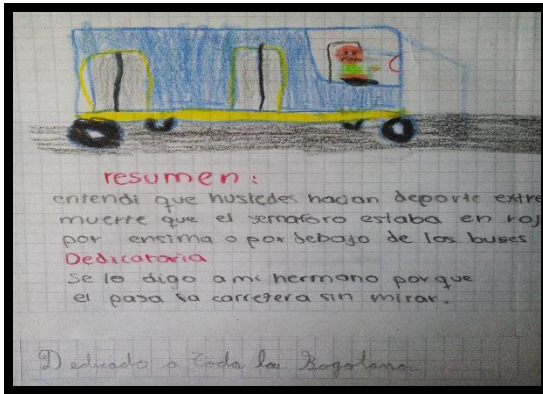 resumen:
entendi que hustedes hacian deporte extre
muerte que el semaforo estaba en roj
por ensima o por debajo de los buses
Dedicatoria
se lo digo a mi hermano porque
el pasa la carretera sin mirar.
Dedicado a toda la Bogotana